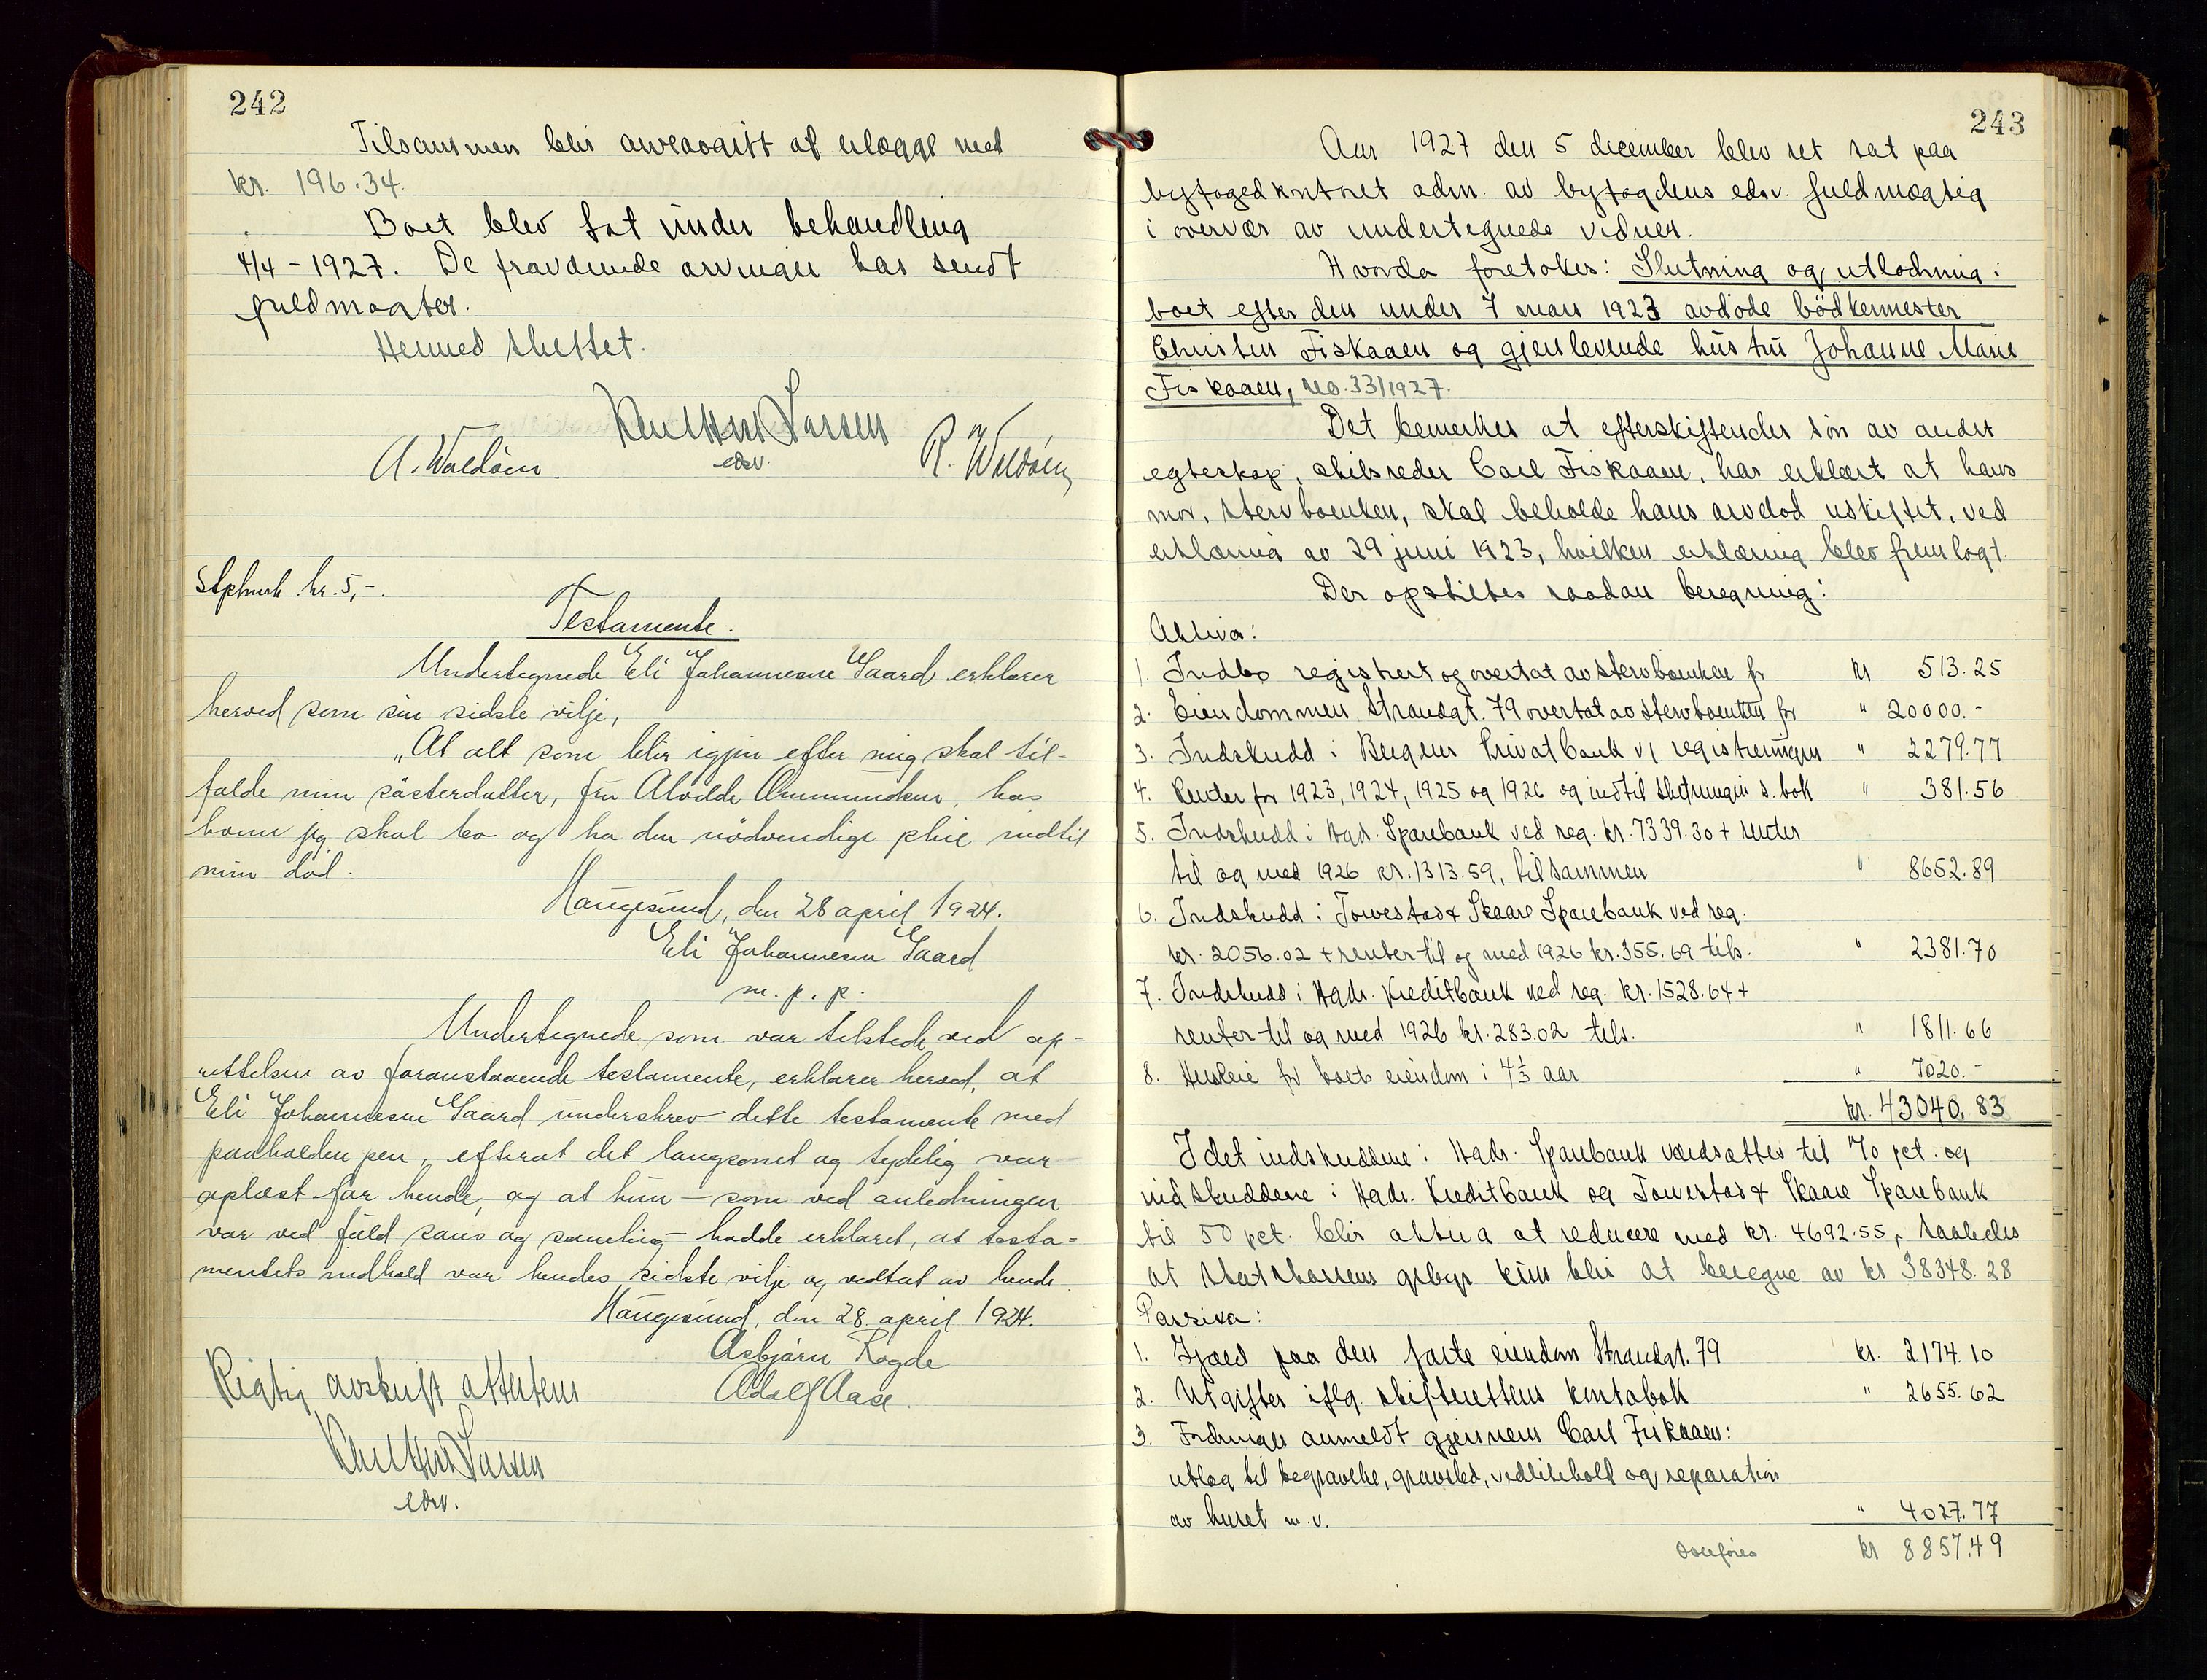 242
Tilsammen blir arveavgift at erlægge med
kr. 196.34.
Boet blev tat under behandling
4/4 - 1927. De fraværende arvinger har sendt
fuldmagter.
Hermed sluttet.
Larsen
edsv.
A. Waldöen.
R. Waldöen
Stphmrk kr. 5,-.
Testamente.
Undertegnede Eli Johannesen Gaard erklærer
herved som sin sidste vilje,
„At alt som blir igjen efter mig skal til-
falde min søsterdatter, fru Alvilde Ommundsen, hos
hvem jeg skal bo og ha den nödvendige pleie indtil
min död.
Haugesund, den 28 april 1924.
Eli Johannesen Gaard
m. p. p.
Undertegnede som var tilstede ved op-
rettelsen av foranstaaende testamente, erklærer herved, at
Eli Johannesen Gaard underskrev dette testamente med
paaholden pen, efterat det langsomt og tydelig var
oplæst for hende, og at hun – som ved anledningen
var ved fuld sans og samling – hadde erklæret, at testa-
mentets indhold var hendes sidste vilje og vedtat av hende.
Haugesund, den 28 april 1924.
Asbjørn Rogde
Adolf Aase.
Rigtig avskrift attesteres
Larsen
edsv.
243
Aar 1927 den 5 december blev ret sat paa
byfogedkontoret adm. av byfogdens edsv. fuldmægtig
i overvær av undertegnede vidner.
Hvorda foretokes: Slutning og utlodning i
boet efter den under 7 mars 1923 avdöde bödkermester
Christen Fiskaaen og gjenlevende hustru Johanne Marie
Fiskaaen, no. 33/1927.
Det bemerkes at efterskiftendes sön av andet
egteskap, skibsreder Carl Fiskaaen, har erklært at hans
mor, stervboenken, skal beholde hans arvelod uskiftet, ved
erklæring av 29 juni 1923, hvilken erklæring blev fremlagt.
Der opstilles saadan beregning:
Aktiva:
1. Indbo registrert og overtat av stervboenken for kr 513.25
2. Eiendommen Strandgt. 79 overtat av stervboenken for " 20000.-
3. Indskudd i Bergens Privatbank v/ registreringen " 2279.77
4. Renter for 1923, 1924, 1925 og 1926 og indtil slutningen s. bok " 381.56
5. Indskudd i Hgds. Sparebank ved reg. kr. 7339.30 + renter
til og med 1926 kr. 1313.59, tilsammen " 8652.89
6. Indskudd i Torvestad & Skaare Sparebank ved reg.
kr. 2056.02 + renter til og med 1926 kr. 355.69 tils. " 2381.70
7. Indskudd i Hgds. Kreditbank ved reg. kr. 1528.64 +
renter til og med 1926 kr. 283.02 tils. " 1811.66
8. Husleie for boets eiendom i 4⅓ aar " 7020.-
kr. 43040.83
Idet indskuddene i Hgds. Sparebank værdsættes til 70 pct. og
indskuddene i Hgds. Kreditbank og Torvestad & Skaare Sparebank
til 50 pct. blir aktiva at reducere med kr. 4692.55, saaledes
at statskassens gebyr kun blir at beregne av kr 38348.28
Passiva:
1. Gjæld paa den faste eiendom Strandgt. 79 kr. 2174.10
2. Utgifter iflg. skifterettens kontobok " 2655.62
3. Fordringer anmeldt gjennem Carl Fiskaaen:
utlæg til begravelse, gravsted, vedlikehold og reparation
av huset m.v. " 4027.77
Overføres kr 8857.49